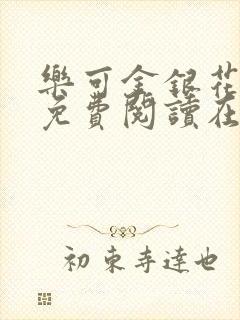 樂可金銀花
免費閱讀在
初東寺達也